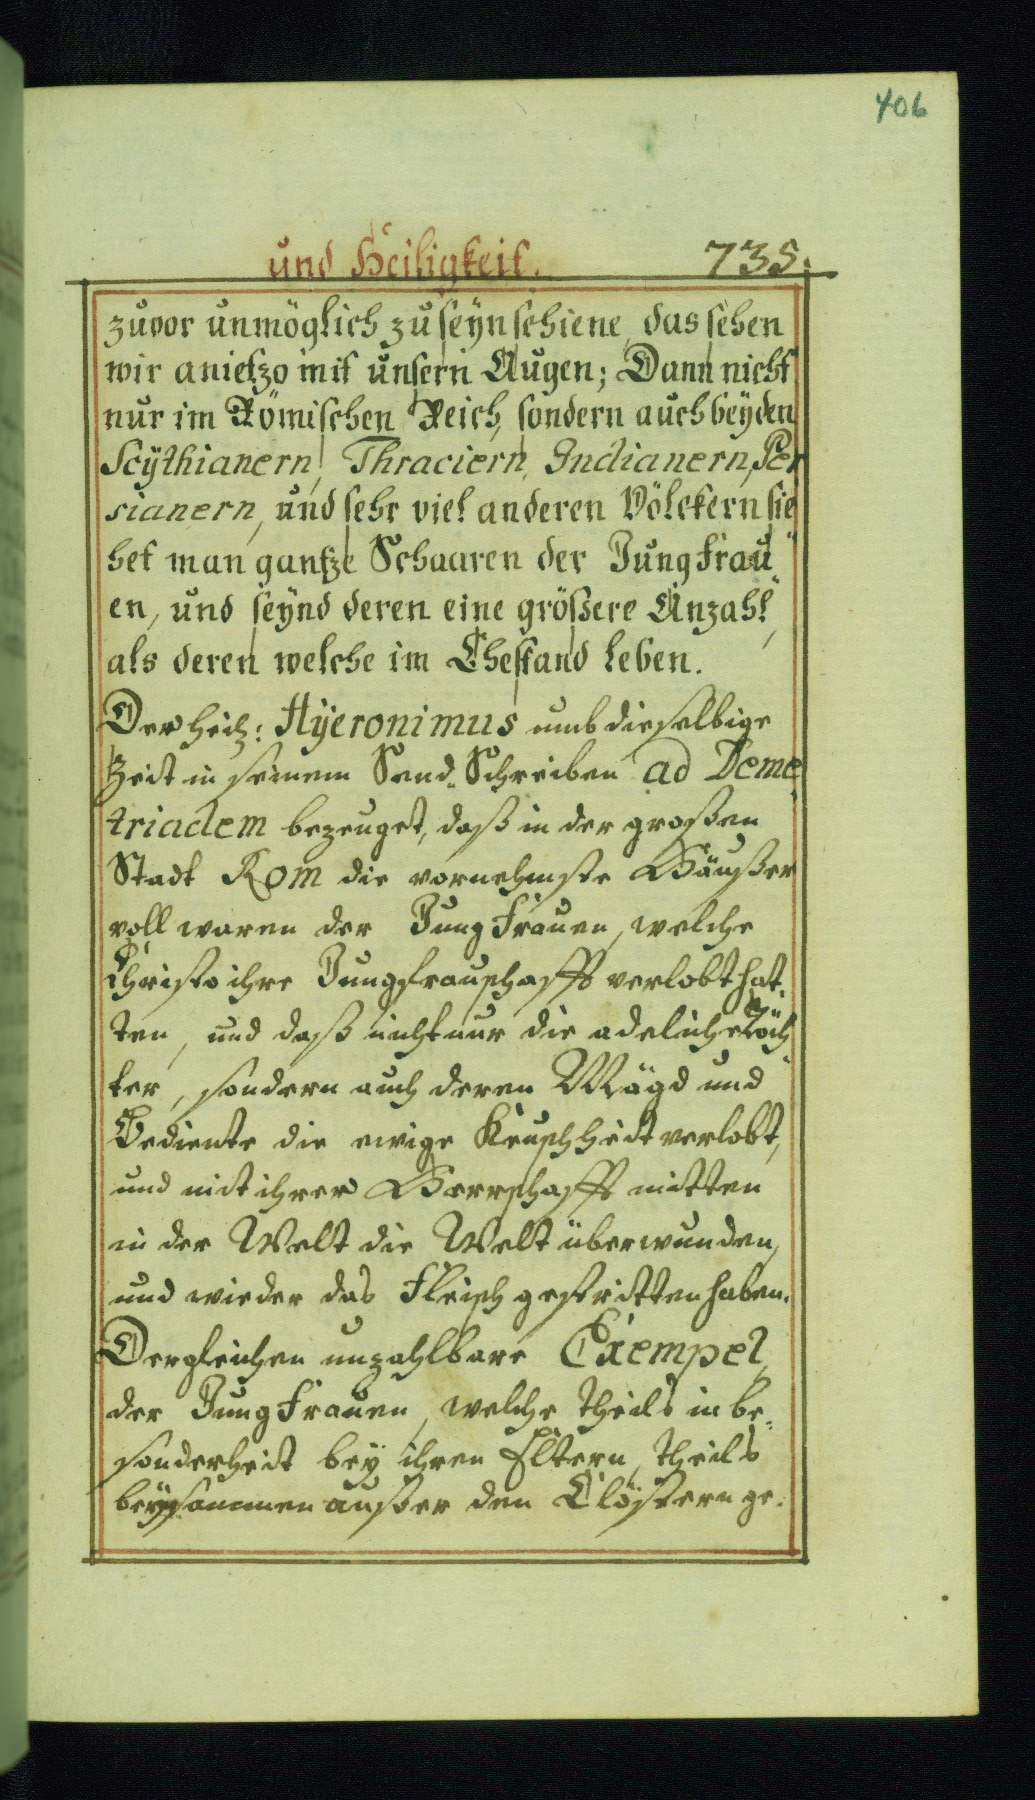 406
und Heiligkeit. 735.
zuvor unmöglich zu seÿn schiene, das sehen
wir anietzo mit unsern Augen; Dann nicht
nur im Römischen Reich, sondern auch beÿ den
Scÿthianern, Thraciern, Indianern, Per
sianern, und sehr viel anderen Völckern sie
het man gantze Schaaren der Jungfrau
en, und seÿnd deren eine größere Anzahl,
als deren welche im Ehestand leben.
Der heilg: Hÿeronimus umb dieselbige
Zeit in seinem Send-Schreiben ad Deme
triadem bezeuget, daß in der großen
Stadt Rom die vornehmste Häußer
voll waren der Jungfrauen, welche
Christo ihre Jungfrauschafft verlobt hat-
ten, und daß nicht nur die adeliche Töch
ter, sondern auch deren Mägd und
Bediente die ewige Keuschheit verlobt,
und mit ihrer Herrschafft mitten
in der Welt die Welt überwunden,
und wieder das Fleisch gestritten haben.
Dergleichen unzahlbare Exempel
der Jungfrauen, welche theils in be-
sonderheit beÿ ihren Eltern, theils
beÿsammen außer den Clöstern ge-